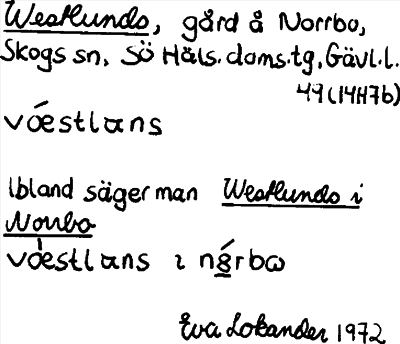 Westlunds, gård å Norrbo,
Skogs sn, Sö Häls. doms.tg, Gävl.l.
49 (14H7b)
vǽstlans
Ibland säger man Westlunds i
Norrbo
vǽstlans ı nɞ́rbɷ
Eva Lokander 1972